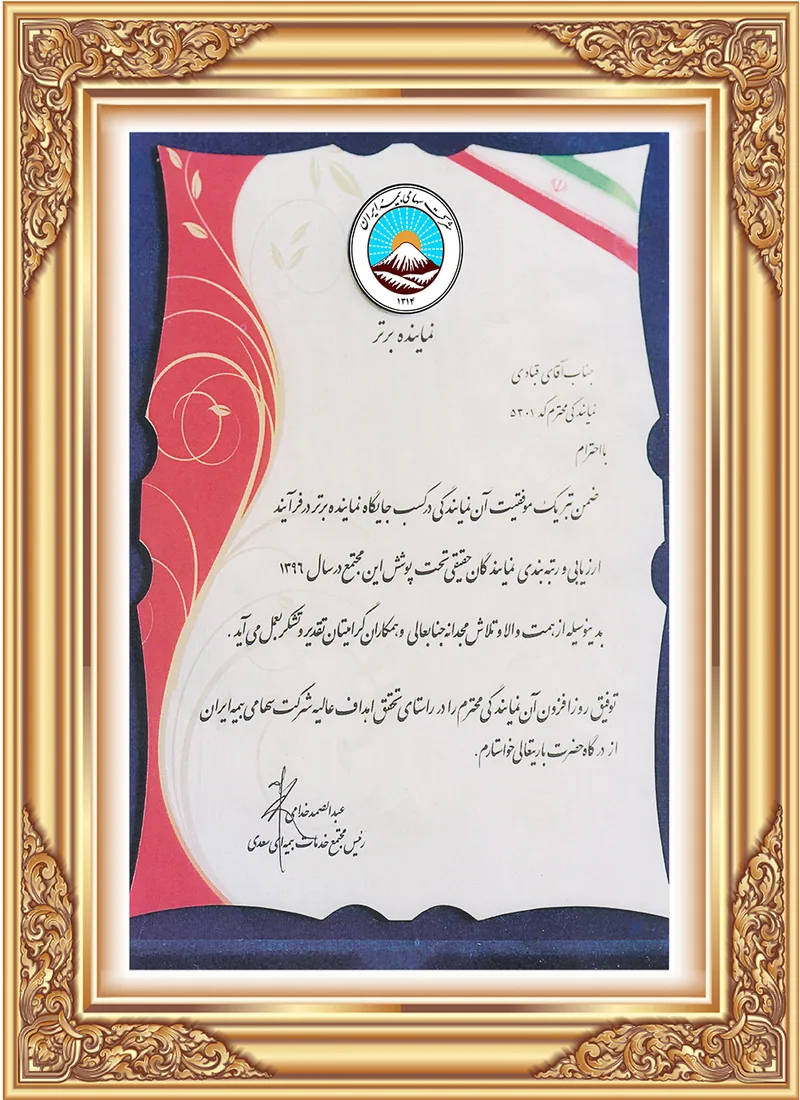 شرکت سهامی بیمه ایران
۱۳۱۴
نماینده برتر
جناب آقای قبادی
نمایندگی محترم کد ۵۳۰۱
با احترام
ضمن تبریک موفقیت آن نمایندگی در کسب جایگاه نماینده برتر در فرآیند
ارزیابی و رتبه بندی نمایندگان حقیقی تحت پوشش این مجتمع در سال ۱۳۹۶
بدینوسیله از همت والا و تلاش مجدانه جنابعالی و همکاران گرامیتان تقدیر و تشکر بعمل می آید .
توفیق روز افزون آن نمایندگی محترم را در راستای تحقق اهداف عالیه شرکت سهامی بیمه ایران
از درگاه حضرت باریتعالی خواستارم.
عبدالصمد خدامی
رئیس مجتمع خدمات بیمه ای سعدی